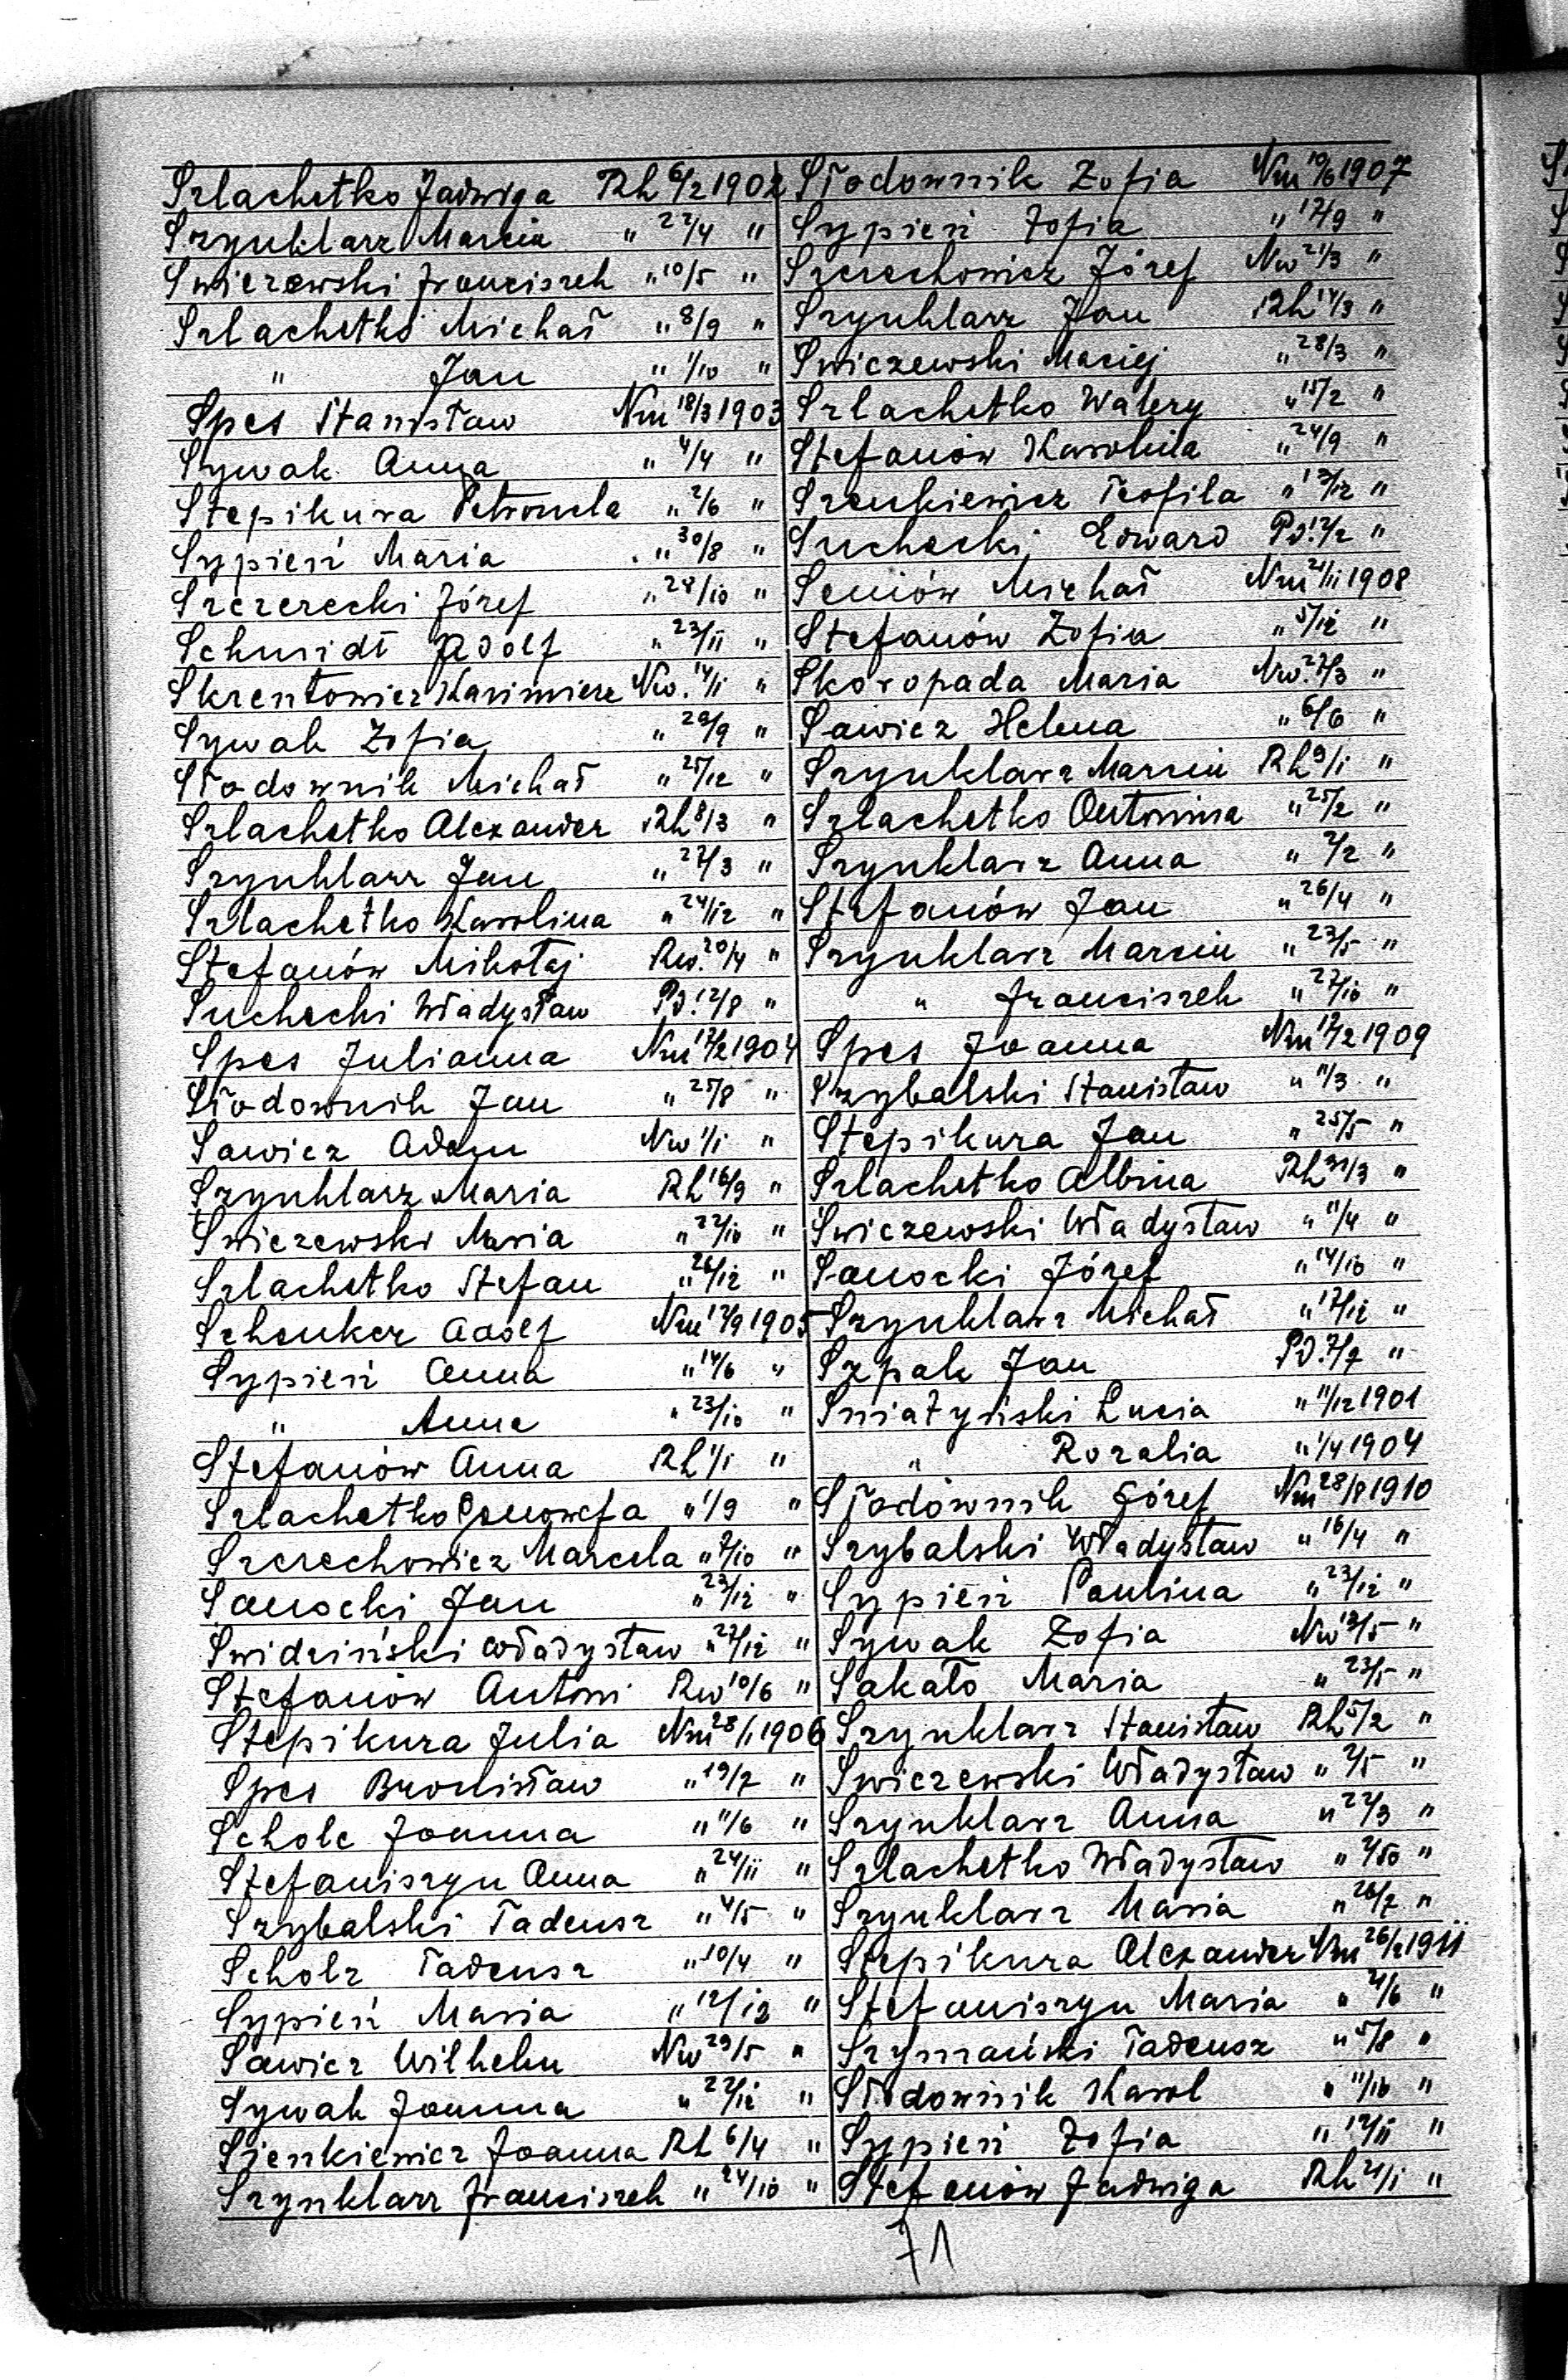 Szlachetko Jadwiga Rh 6/2 1902
Szynklarz Marcin " 22/4 "
Swiczewski Franciszek " 10/5 "
Szlachetko Michał " 8/9 "
" Jan " 1/10 "
Spes Stanisław Nm 18/3 1903
Sywak Anna " 4/4 "
Stepikura Petronela " 2/6 "
Sypień Maria " 30/8 "
Szczerecki Józef " 28/10 "
Schmidt Adolf " 23/11 "
Skrentowicz Kazimierz Nw. 14/1 "
Sywak Zofia " 29/9 "
Słodownik Michał " 25/12 "
Szlachetko Alexander Rh 8/3 "
Szynklarz Jan " 27/3 "
Szlachetko Karolina " 24/12 "
Stefanów Mikołaj Rw. 20/4 "
Suchecki Władysław Pd. 12/8 "
Spes Julianna Nm 17/2 1904
Słodownik Jan " 25/8 "
Sawicz Adam Nw 1/1 "
Szynklarz Maria Rh 16/9 "
Swiczewski Maria " 22/10 "
Szlachetko Stefan " 26/12 "
Schenker Adolf Nm 17/9 1905
Sypień Anna " 14/6 "
" Anna " 23/10 "
Stefanów Anna Rh 1/1 "
Szlachetko Genowefa " 1/9 "
Szczechowicz Marcela " 7/10 "
Sanocki Jan " 23/12 "
Swidziński Władysław " 27/12 "
Stefanów Antoni Rw 10/6 "
Stepikura Julia Nm 28/1 1906
Spes Bronisław " 19/7 "
Scholc Joanna " 11/6 "
Stefaniszyn Anna " 24/11 "
Szybalski Tadeusz " 4/5 "
Scholz Tadeusz " 10/4 "
Sypień Maria " 12/12 "
Sawicz Wilhelm Nw 29/5 "
Sywak Joanna " 27/12 "
Sienkiewicz Joanna Rh 6/4 "
Szynklarz Franciszek " 24/10 "
Słodownik Zofia Nm 10/6 1907
Sypień Zofia " 17/9 "
Szczechowicz Józef Nw 21/3 "
Szynklarz Jan Rh 14/3 "
Swiczewski Maciej " 28/3 "
Szlachetko Walery " 15/2 "
Stefanów Karolina " 24/9 "
Szenkiewicz Teofila " 13/12 "
Suchecki Edward Pd. 12/2 "
Seniów Michał Nm 21/11 1908
Stefanów Zofia " 5/12 "
Skoropada Maria Nw. 27/3 "
Sawicz Helena " 6/6 "
Szynklarz Marcin Rh 9/1 "
Szlachetko Antonina " 25/2 "
Szynklarz Anna " 7/2 "
Stefanów Jan " 26/4 "
Szynklarz Marcin " 23/5 "
" Franciszek " 27/10 "
Spes Joanna Nm 17/2 1909
Szybalski Stanisław " 11/3 "
Stepikura Jan " 25/5 "
Szlachetko Albina Rh 31/3 "
Swiczewski Władysław " 11/4 "
Sanocki Józef " 14/10 "
Szynklarz Michał " 17/12 "
Szpak Jan Pd. 7/7 "
Sniatyński Lucia " 11/12 1901
" Rozalia " 1/4 1904
Słodownik Józef Nm 28/8 1910
Szybalski Władysław " 16/4 "
Sypień Paulina " 23/12 "
Sywak Zofia Nw 13/5 "
Sakało Maria " 23/5 "
Szynklarz Stanisław Rh 5/2 "
Swiczewski Władysław " 2/5 "
Szynklarz Anna " 22/3 "
Szlachetko Władysław "
Szynklarz Maria " 26/7 "
Stepikura Alexander Nm 26/2 1911
Stefaniszyn Maria " 21/6 "
Szymański Tadeusz " 5/8 "
Słodownik Karol " 11/10 "
Sypień Zofia " 12/11 "
Stefanów Jadwiga Rh 21/1 "
71